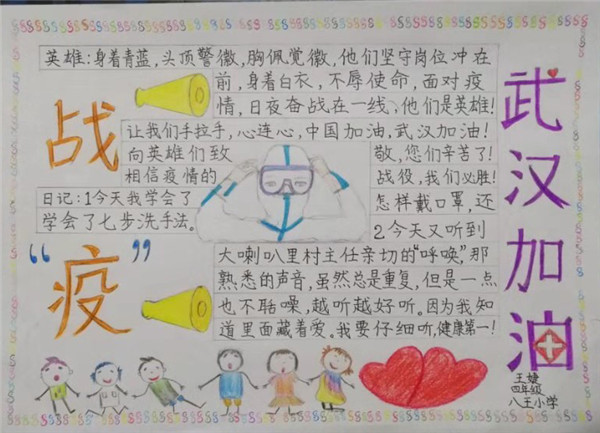 英雄：身着青蓝，头顶警徽，胸佩党徽，他们坚守岗位冲在
前，身着白衣，不辱使命，面对疫
情，日夜奋战在一线、他们是英雄！
让我们手拉手，心连心，中国加油，武汉加油！
向英雄们致敬，您们辛苦了！
相信疫情的战役，我们必胜！
日记：1今天我学会了怎样戴口罩，还
学会了七步洗手法。
2今天又听到
大喇叭里村主任亲切的“呼唤”，那
熟悉的声音，虽然总是重复，但是一点
也不聒噪，越听越好听。因为我知
道里面藏着爱。我要仔细听，健康第一！
战
“疫”
武汉加油
王婕
四年级
八王小学